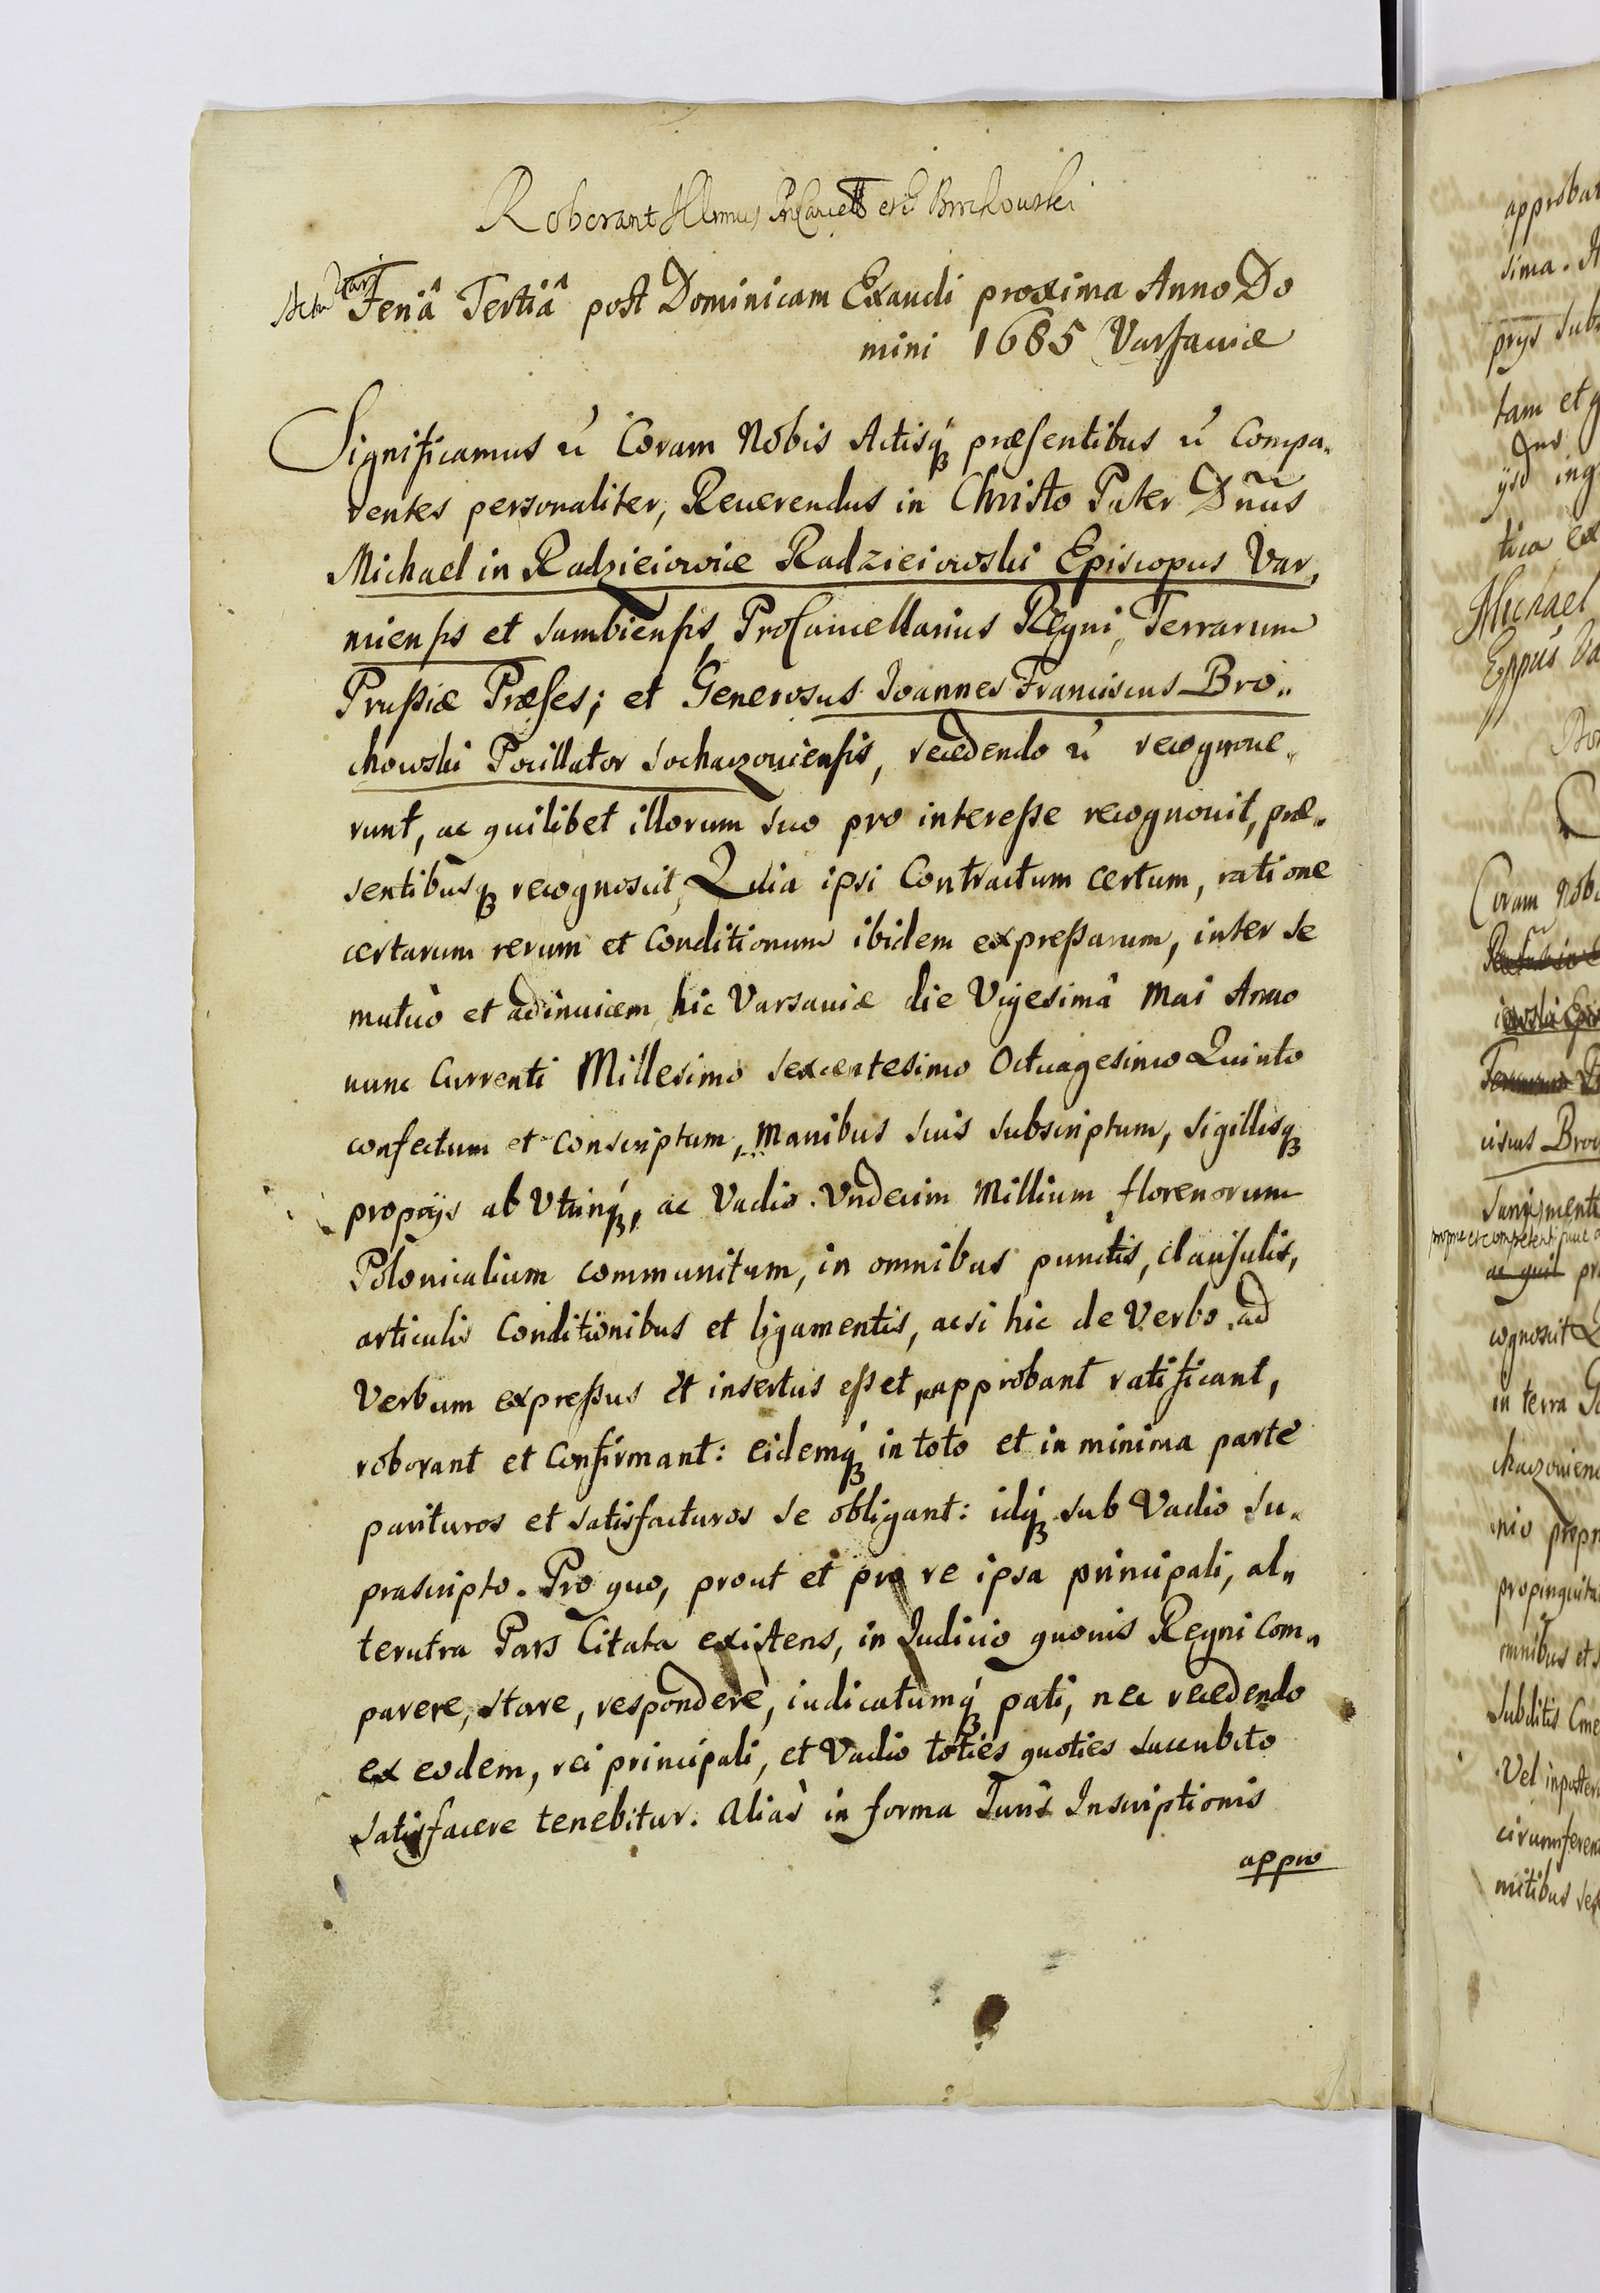 Roborant Illmus ProCancell et G Brochowski
Actu Feriâ Tertiâ post Dominicam Exaudi proxima Anno Do
mini 1685 Varsauiæ
Significamus ũ Coram Nobis Actisq́ præsentibus ũ Compa„
rentes personaliter, Reuerendus in Christo Pater Dñus
Michael in Radzieiowice Radzieiowski Episcopus Var„
miensis et Sambiensis, ProCancellarius Regni, Terrarum
Prussiæ Præses; et Generosus Ioannes Franciscus Bro„
chowski Pocillator Sochaczouiensis, recedendo ũ recognoue„
runt, ac quilibet illorum suo pro interesse recognouit, præ„
sentibusq recognoscit, Quia ipsi Contractum certum, ratione
certarum rerum et Conditionum ibidem expressarum, inter se
mutuò et adinuicem hic Varsauiæ die Vigesimâ Mai Anno
nunc Currenti Millesimo Sexcentesimo Octuagesimo Quinto
confectum et Conscriptum, Manibus suis subscriptum, sigillisq
proprijs ab Utrinq́, ac Vadio Vndecim Millium florenorum
Polonicalium communitum, in omnibus punctis, clausulis,
articulis Conditionibus et ligamentis, acsi hic de Verbo ad
Verbum expressus et insertus esset, approbant ratificant,
roborant et Confirmant: eidemq́ in toto et in minima parte
parituros et satisfacturos se obligant: idq́ sub Vadio su„
prascripto. Pro quo, prout et pro re ipsa principali, al„
terutra Pars Citata existens, in Iudicio quouis Regni Com„
parere, stare, respondere, iudicatumq́ pati, nec recedendo
ex eodem, rei principali, et Vadio toties quoties succubito
satisfacere tenebitur. Aliàs in forma Iuris Inscriptionis
appro
approbat
sima.
prijs sub
tam et
ing
Michael
Eppus Va
Coram Nobi
ciscus Broc
cognoscit
in terra
chaczouien
nio propr
propinquita
omnibus et
Subditis Cme
Vel inposter
circumferen
mitibus